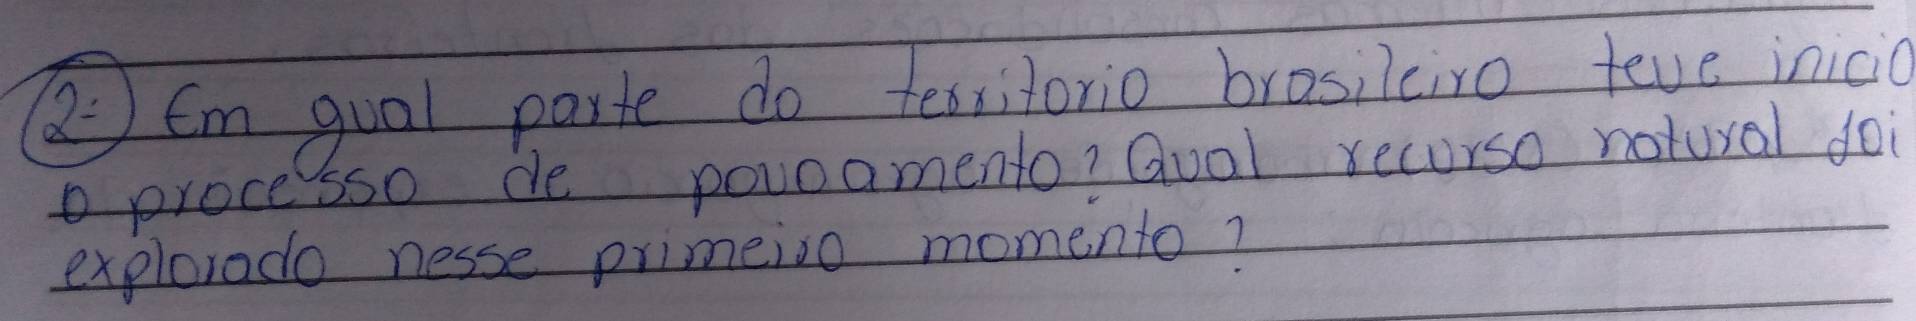 2-) Em qual parte do territorio brasileiro teve inicio
o processo de povoamento? Qual recurso natural foi
explorado nesse primeiro momento?